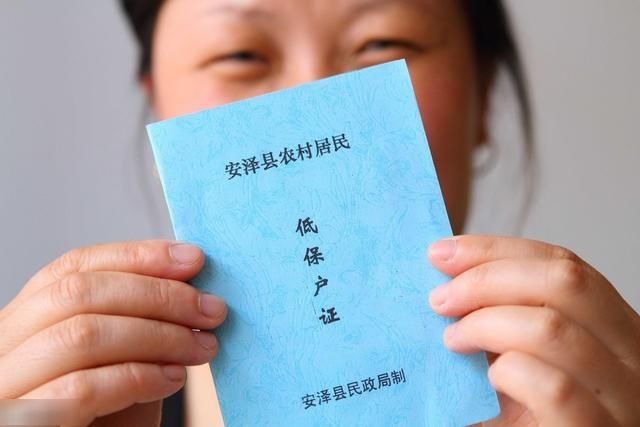 安泽县农村居民
低保户证
安泽县民政局制